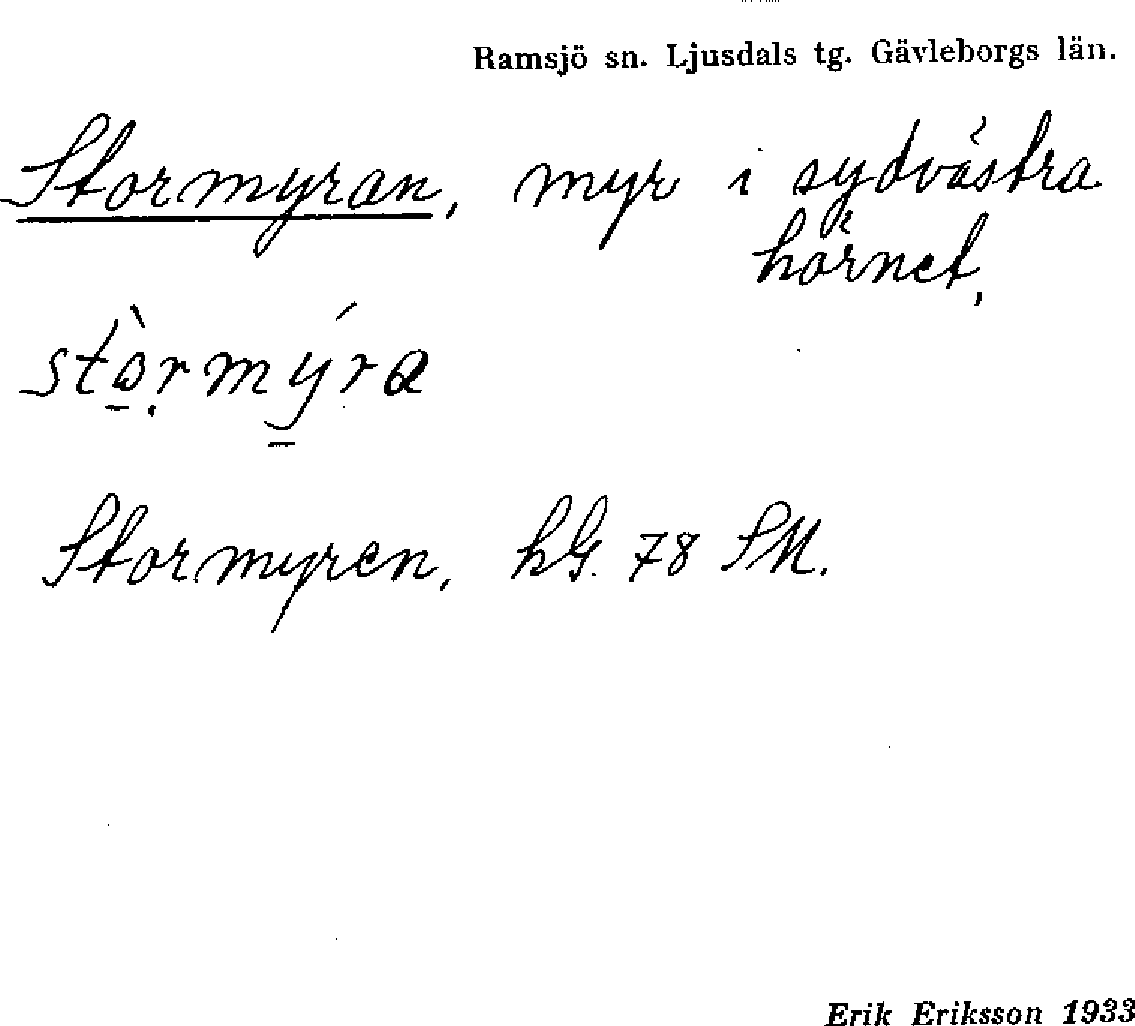 Ramsjö sn. Ljusdals tg. Gävleborgs län.
Stormyran, myr i sydvästra
hörnet,
stòrmýra
Stormyren, hG. 78 SM.
Erik Eriksson 1933